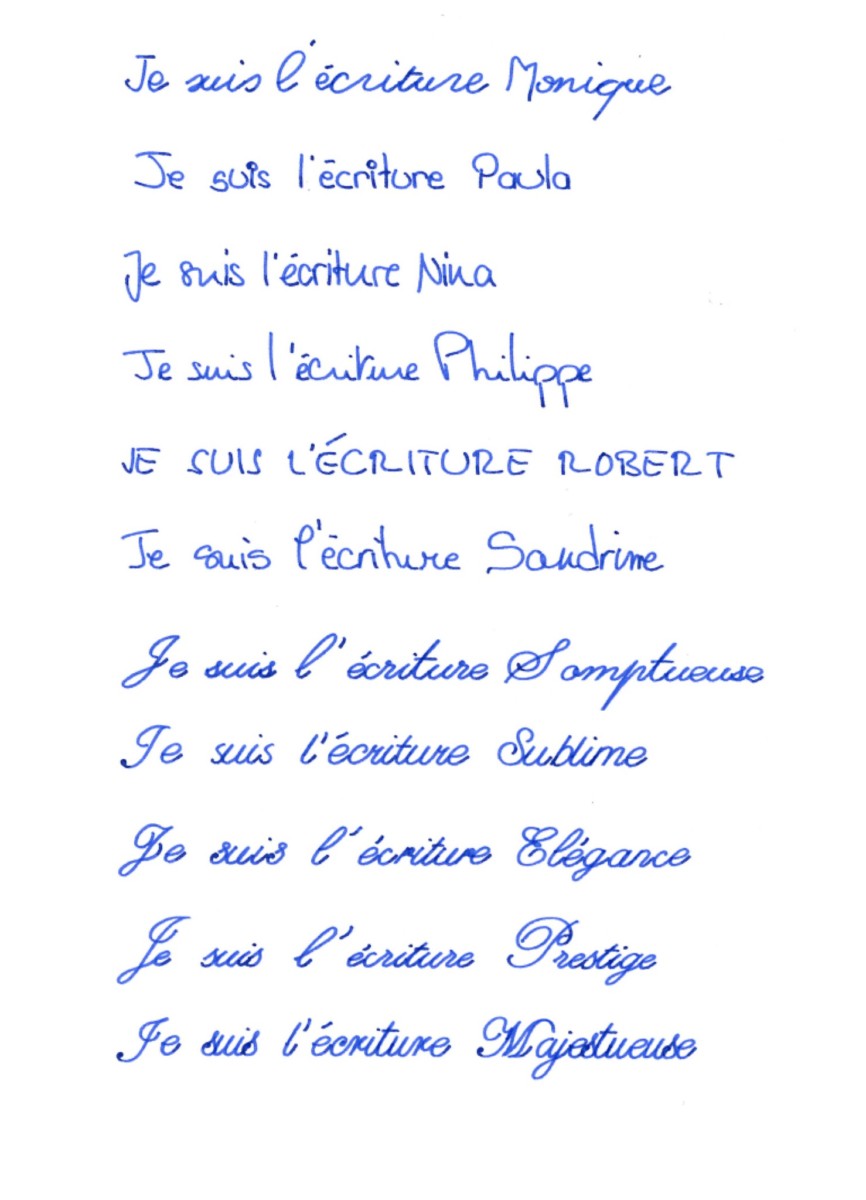 Je suis l'écriture Monique
Je suis l'écriture Paula
Je suis l'écriture Nina
Je suis l'écriture Philippe
JE SUIS L'ÉCRITURE ROBERT
Je suis l'écriture Sandrine
Je suis l'écriture Somptueuse
Je suis l'écriture Sublime
Je suis l'écriture Elégance
Je suis l'écriture Prestige
Je suis l'écriture Majestueuse